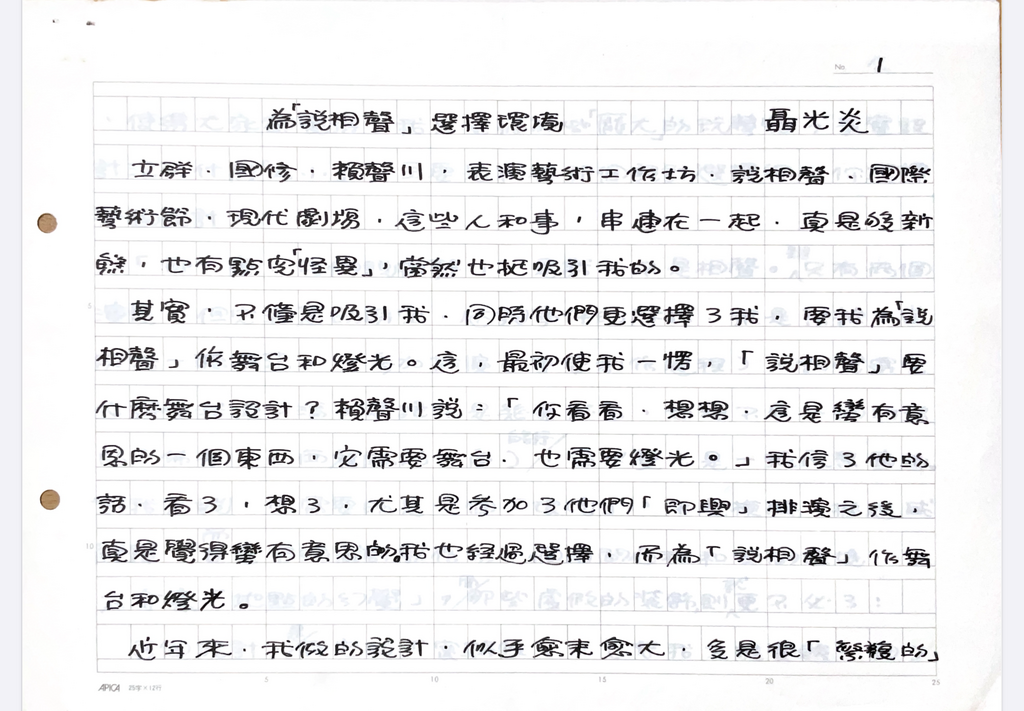 No 1
為「說相聲」選擇環境 聶光炎
立群、國修、賴聲川、表演藝術工作坊、說相聲、國際
藝術節、現代劇場,這些人和事,串連在一起,真是夠新
鮮,也有點兒「怪異」,當然也挺吸引我的。
其實,不僅是吸引我,同時他們更選擇了我,要我為「說
相聲」作舞台和燈光。這,最初使我一愣,「說相聲」要
什麼舞台設計?賴聲川說:「你看看,想想,這是蠻有意
思的一個東西,它需要舞台,也需要燈光。」我信了他的
話,看了,想了,尤其是參加了他們「即興」排演之後,
真是覺得蠻有意思的。我也經過選擇,而為「說相聲」作舞
台和燈光。
近年來,我做的設計,似乎愈來愈大,多是很「繁複的」
5 10 15 20 25
5
10
APICA 25字×12行